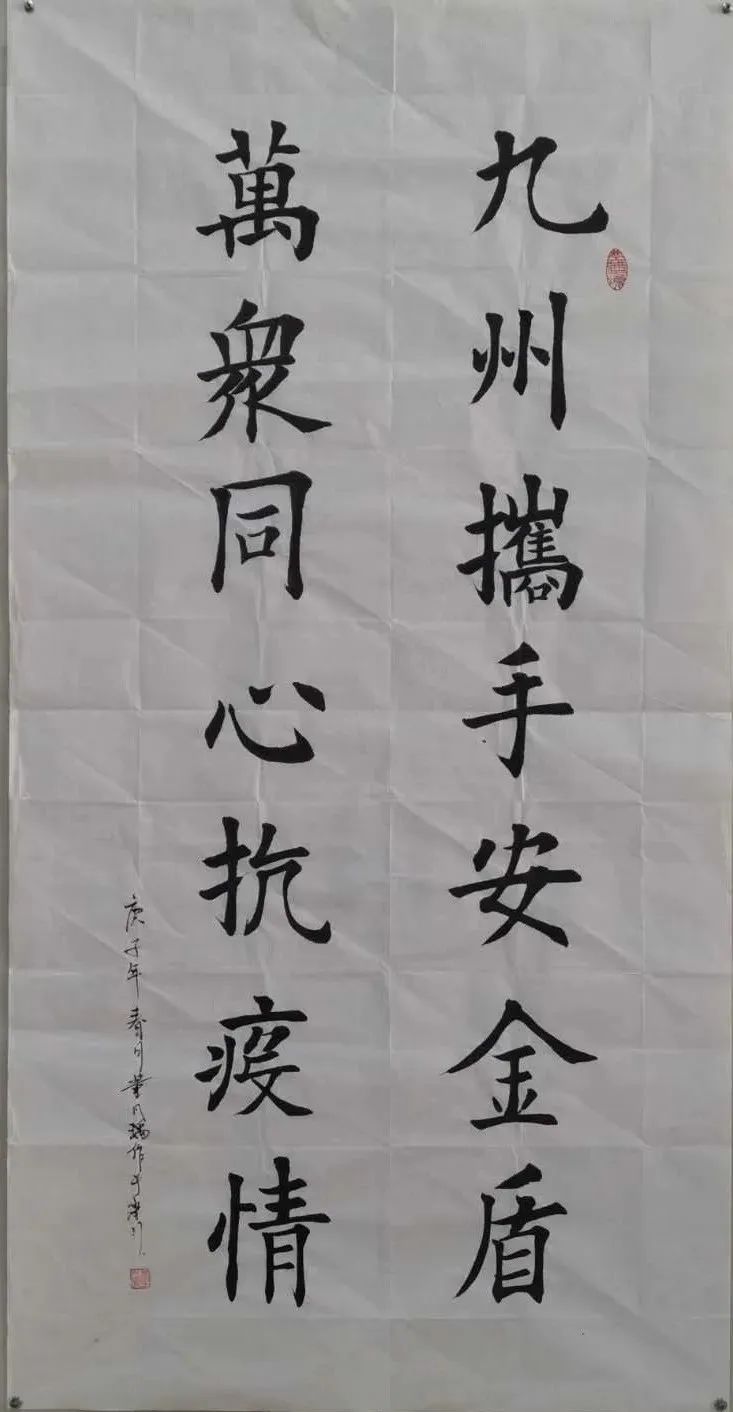 九州攜手安金盾
萬衆同心抗疫情
庚子年春月